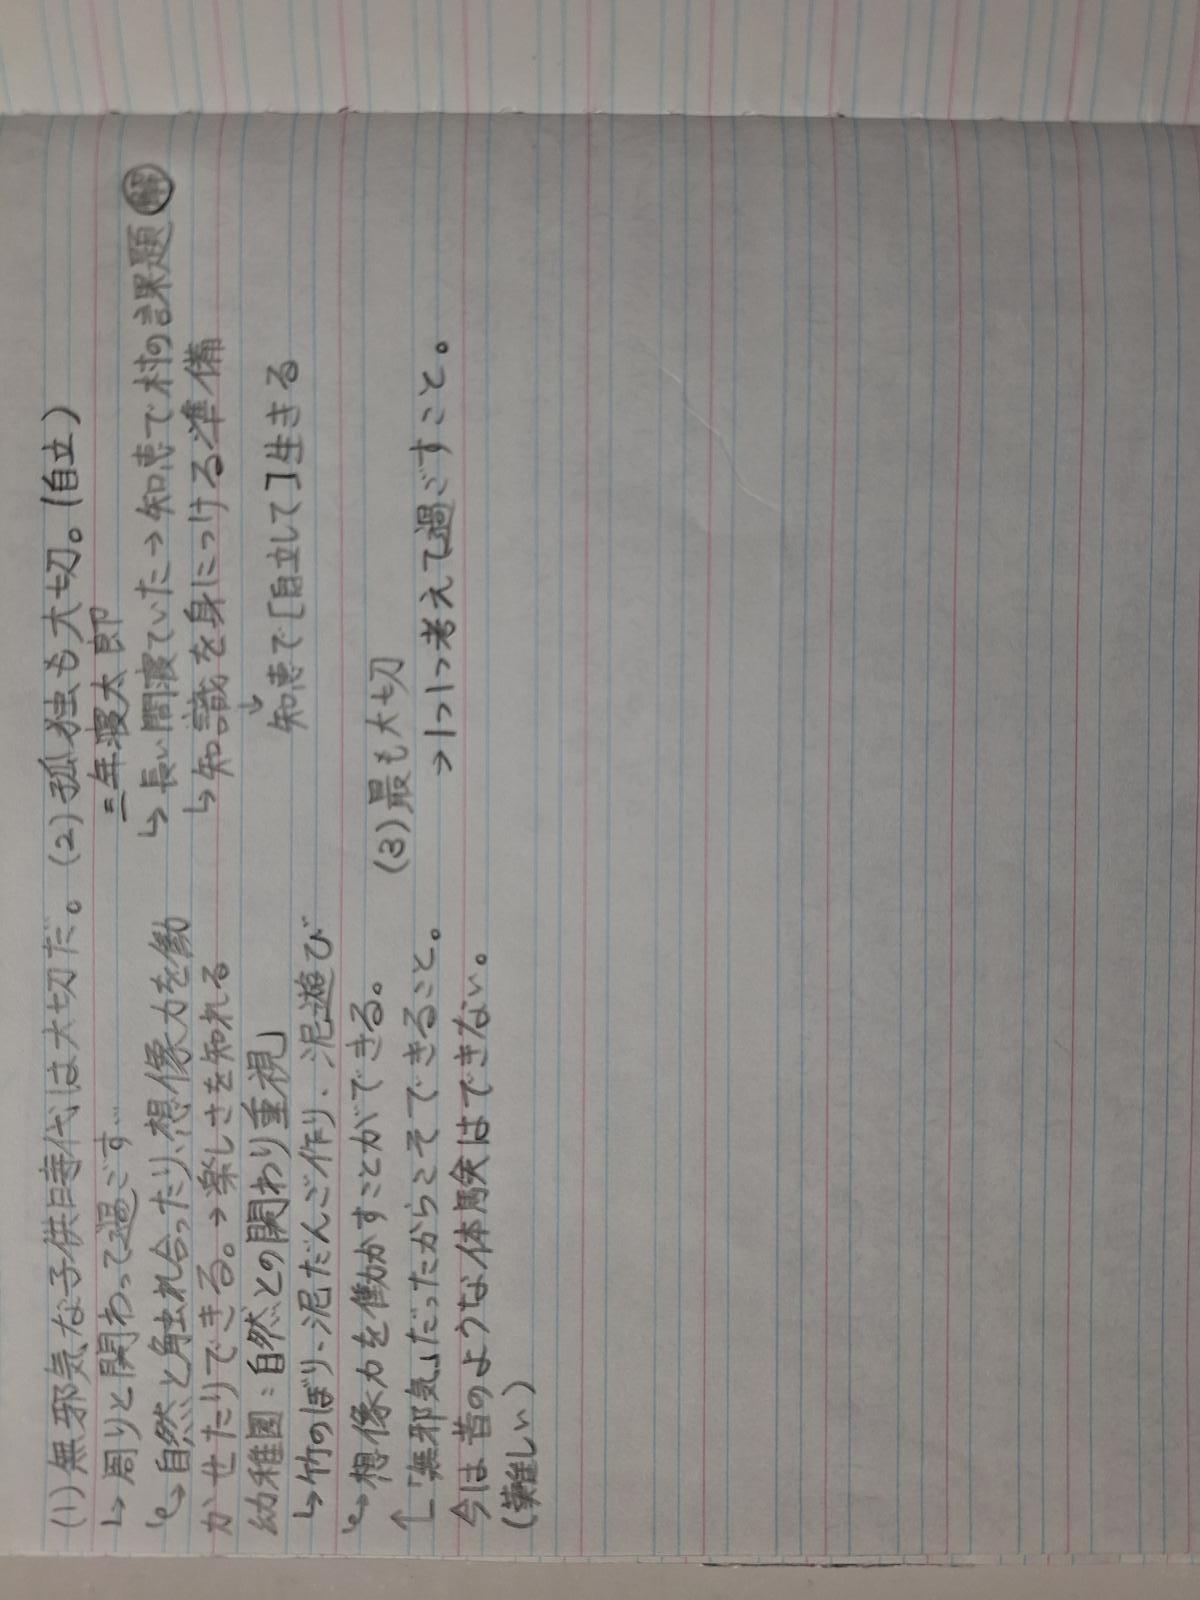 (1)無邪気な子供時代は大切だ。
↳周りと関わって過ごす…
↳自然と触れ合ったり、想像力を働
かせたりできる。→楽しさを知れる
幼稚園：自然との関わり重視」
↳竹のぼり、泥だんご作り、泥遊び
↳想像力を働かすことができる。
↑「無邪気」だったからこそできること。
今は昔のような体験はできない。
(難しい)
(2)孤独も大切。(自立)
三年寝太郎
↳長い間寝ていた→知恵で村の課題解
↳知識を身につける準備
↓
知恵で[自立して]生きる
(3)最も大切
→1つ1つ考えて過ごすこと。